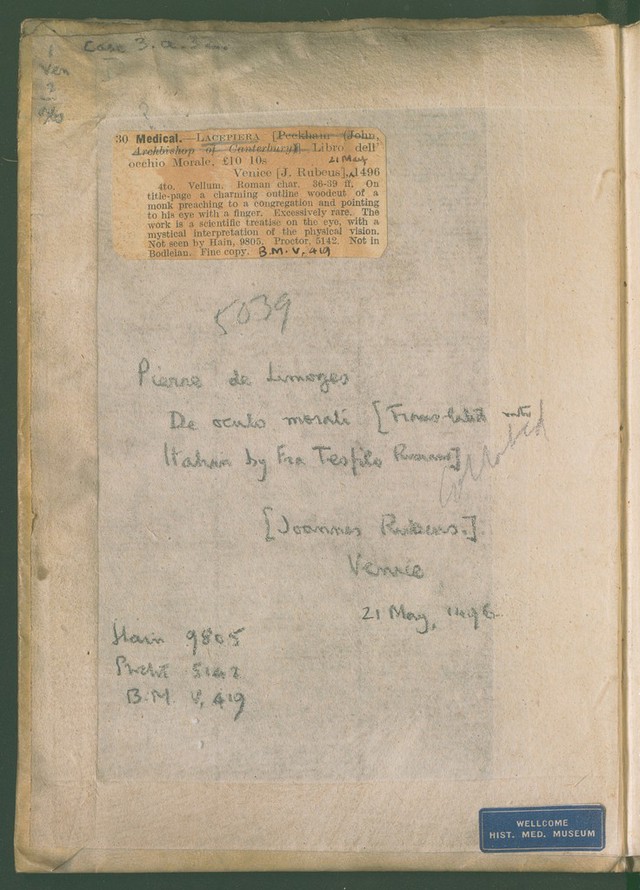 Case 3.a.
1
Ven
2
30 Medical.—LACEPIERA [Peckham (John,
Archbishop of Canterbury)] Libro dell'
occhio Morale, £10 10s
21 May
Venice [J. Rubeus], 1496
4to. Vellum. Roman char. 36-39 ff. On
title-page a charming outline woodcut of a
monk preaching to a congregation and pointing
to his eye with a finger. Excessively rare. The
work is a scientific treatise on the eye, with a
mystical interpretation of the physical vision.
Not seen by Hain, 9805. Proctor, 5142. Not in
Bodleian. Fine copy. B.M. V, 419
5039
Pierre de Limoges
De oculo morali [Translated into
Italian by Fra Teofilo Romano]
collated
[Joannes Rubeus.]
Venice
21 May, 1496
Hain 9805
Proct 5142
B.M. V, 419
WELLCOME
HIST. MED. MUSEUM